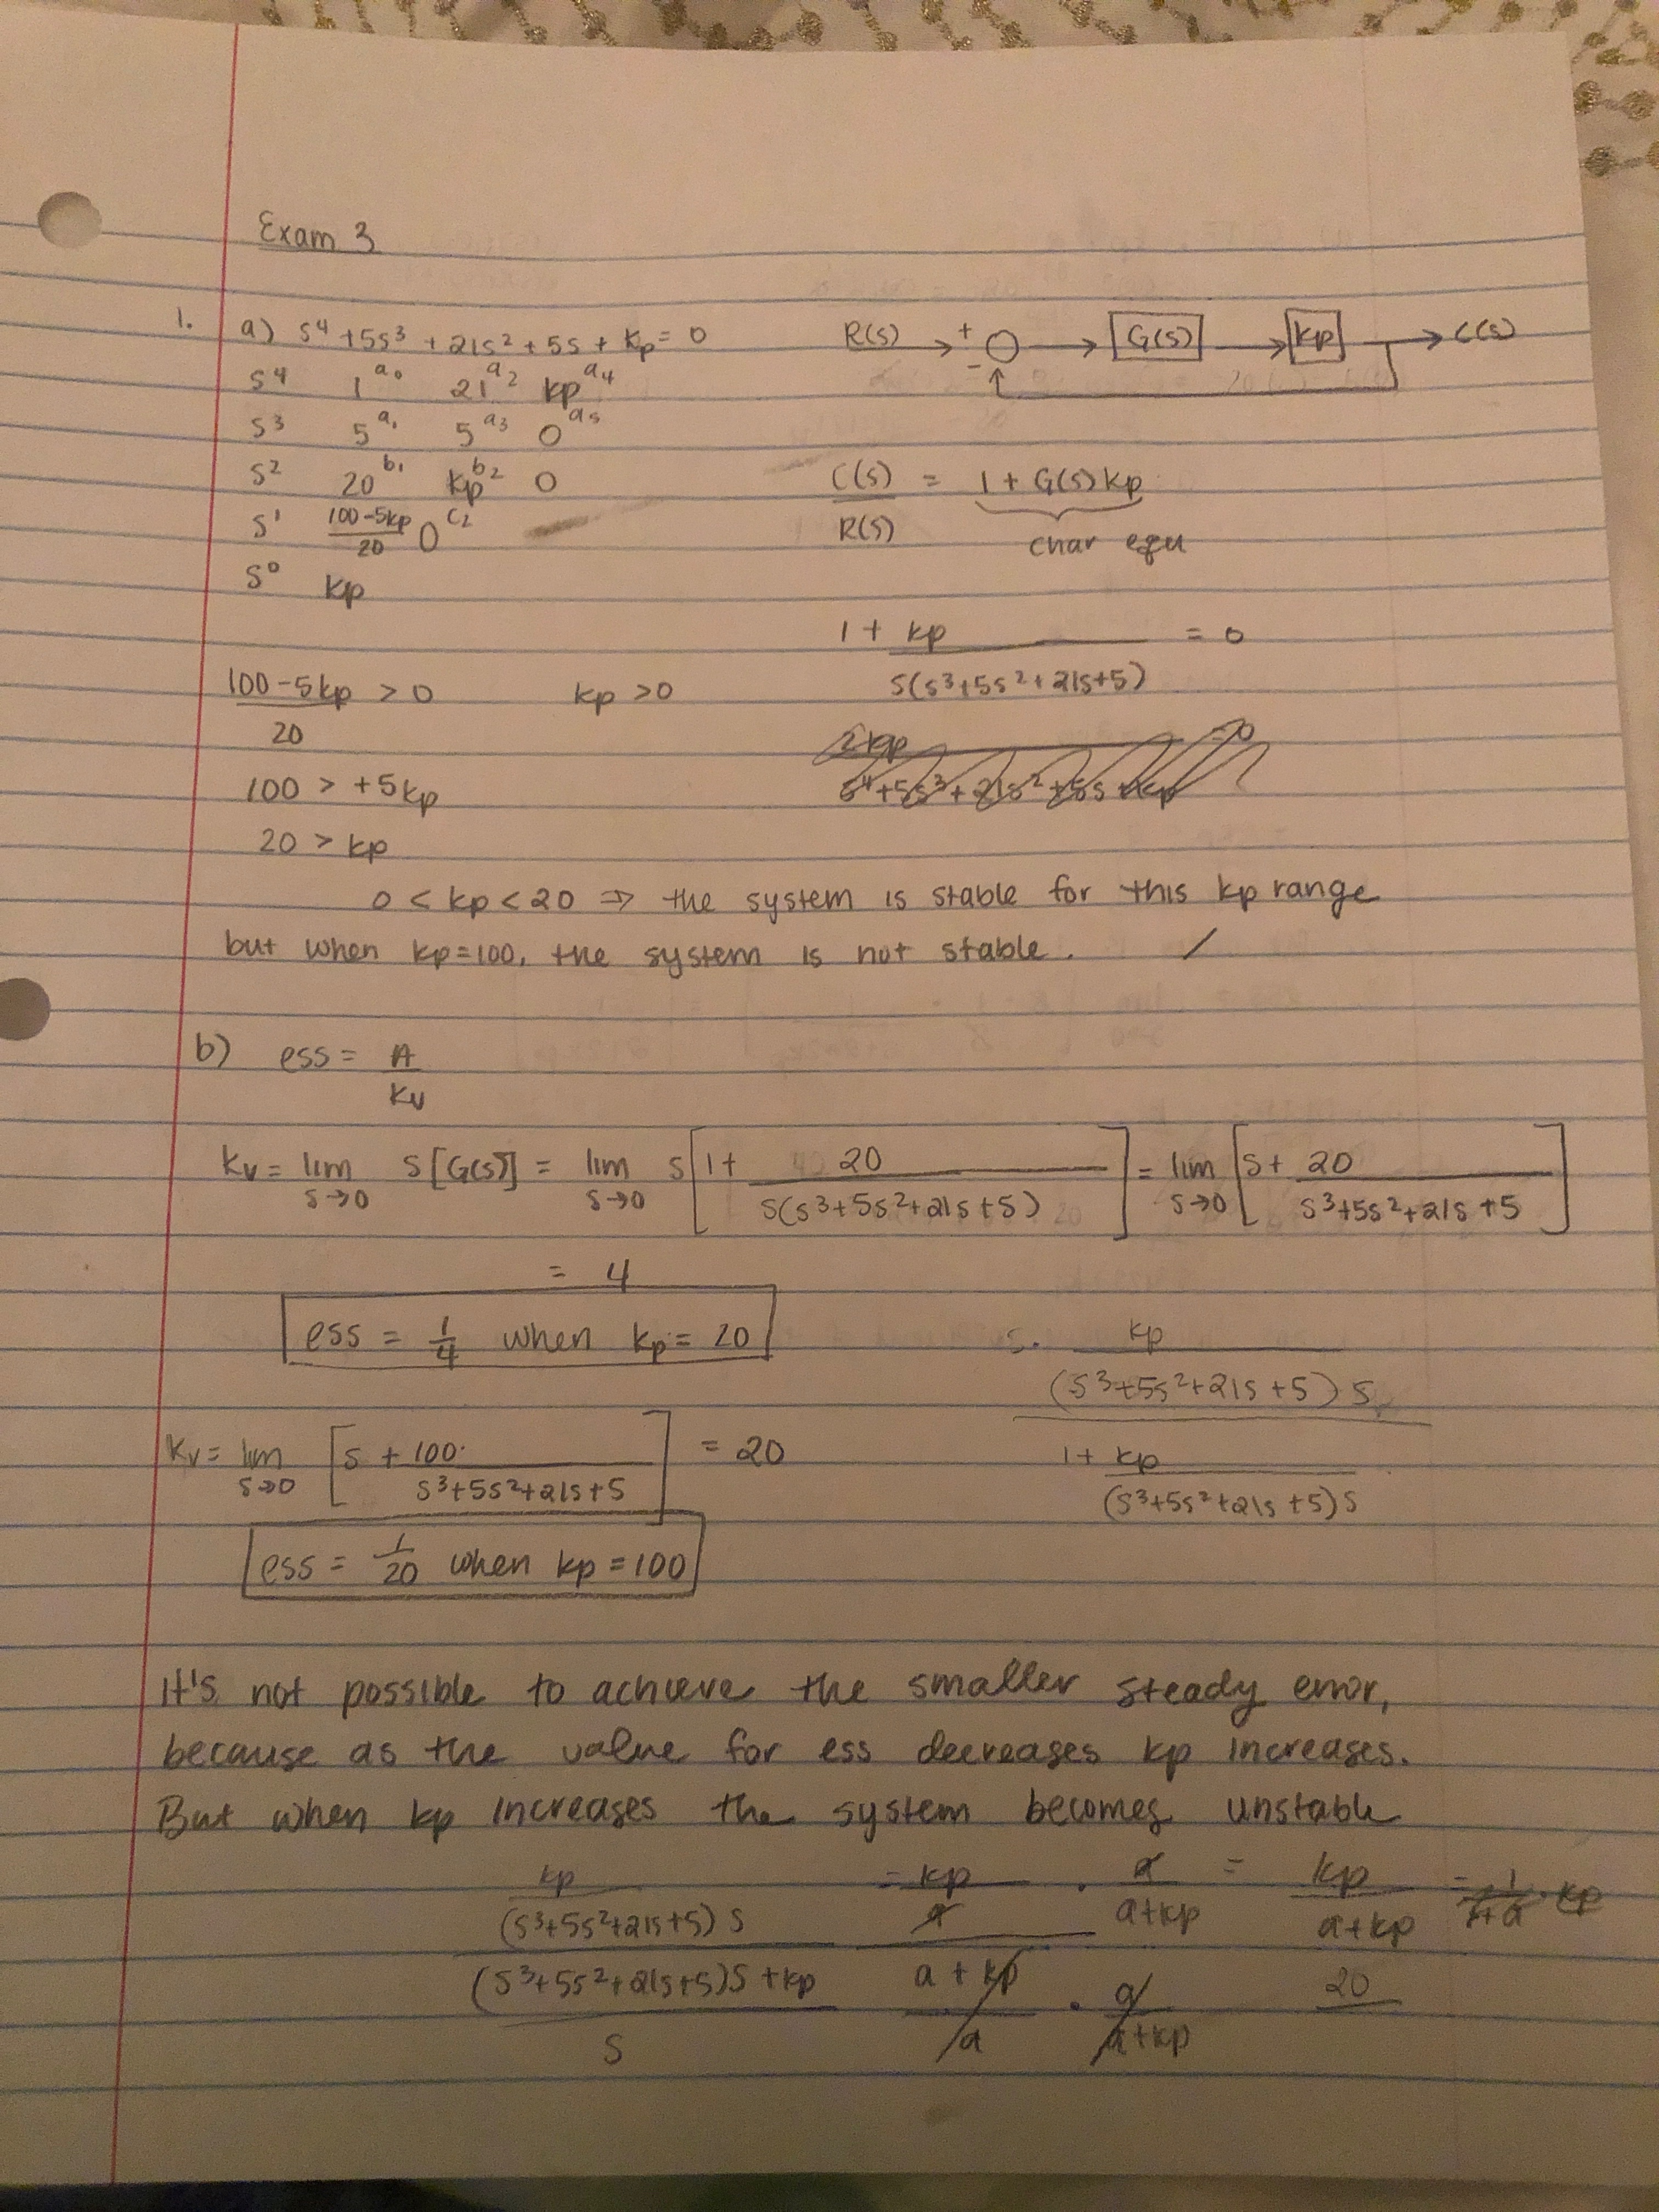 Exam 3
1. a) s⁴ + 5s³ + 21s² + 5s + kp = 0
s⁴ 1^a₀ 21^a₂ kp^a₄
s³ 5^a₁ 5^a₃ 0^a₅
s² 20^b₁ kp^b₂ 0
s¹ (100-5kp)/20 0^c₂
s⁰ kp
R(s) + - G(s) kp C(s)
C(s)/R(s) = 1 + G(s)kp
char equ
1 + kp/(s(s³+5s²+21s+5)) = 0
s⁴+5s³+21s²+5s+kp
(100-5kp)/20 > 0 kp > 0
100 > +5kp
20 > kp
0 < kp < 20 ⇒ the system is stable for this kp range
but when kp=100, the system is not stable. /
b) ess = A/kv
kv = lim s→0 s[G(s)] = lim s→0 s[1 + 20/(s(s³+5s²+21s+5))] = lim s→0 [s + 20/(s³+5s²+21s+5)]
= 4
ess = 1/4 when kp = 20
s. kp/((s³+5s²+21s+5)s)
1 + kp/((s³+5s²+21s+5)s)
kv = lim s→0 [s + 100/(s³+5s²+21s+5)] = 20
ess = 1/20 when kp = 100
It's not possible to achieve the smaller steady error,
because as the value for ess decreases kp increases.
But when kp increases the system becomes unstable
kp/((s³+5s²+21s+5)s) = kp/a · a/(a+kp) = kp/(a+kp) =
((s³+5s²+21s+5)s + kp)/s (a+kp)/a · a/(a+kp) 20